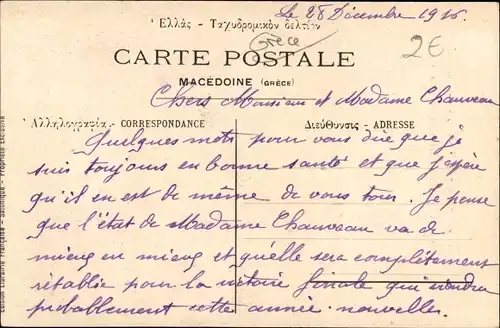 Le 28 Décembre 1916.
Ἑλλὰς - Ταχυδρομικὸν δελτίον
Grèce
2€
CARTE POSTALE
MACÉDOINE (GRÈCE)
Chers Monsieur et Madame Chauveau
Ἀλληλογραφία - CORRESPONDANCE
Διεύθυνσις - ADRESSE
Quelques mots pour vous dire que je
suis toujours en bonne santé et que j'espère
qu'il en est de même de vous tous. Je pense
que l'état de Madame Chauveau va de
mieux en mieux et qu'elle sera complètement
rétablie pour la victoire finale qui viendra
probablement cette année nouvelle.
Edition Librairie Française - Salonique - Propriété Exclusive